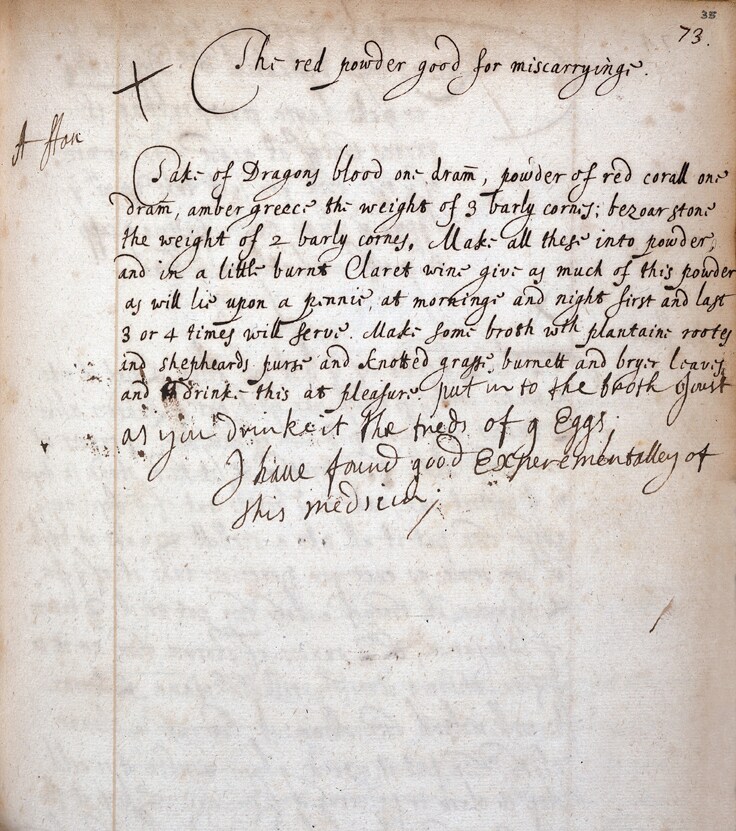 35
73.
The red powder good for miscarryinge.
Take of Dragons blood one dram̄, powder of red corall one
dram̄, ambergreece the weight of 3 barly cornes; bezoar stone
the weight of 2 barly cornes. Make all these into powder,
and in a little burnt Claret wine give as much of this powder
as will lie upon a pennie, at morninge and night first and last
3 or 4 times will serve. Make some broth wth plantaine rootes
and shepheards purse and knotted grasse, burnett and bryer leaves,
and drinke this at pleasure. put in to the broth Joust
as you drinke it the treds of 9 Eggs;
I have found good Experementalley of
this medsein;